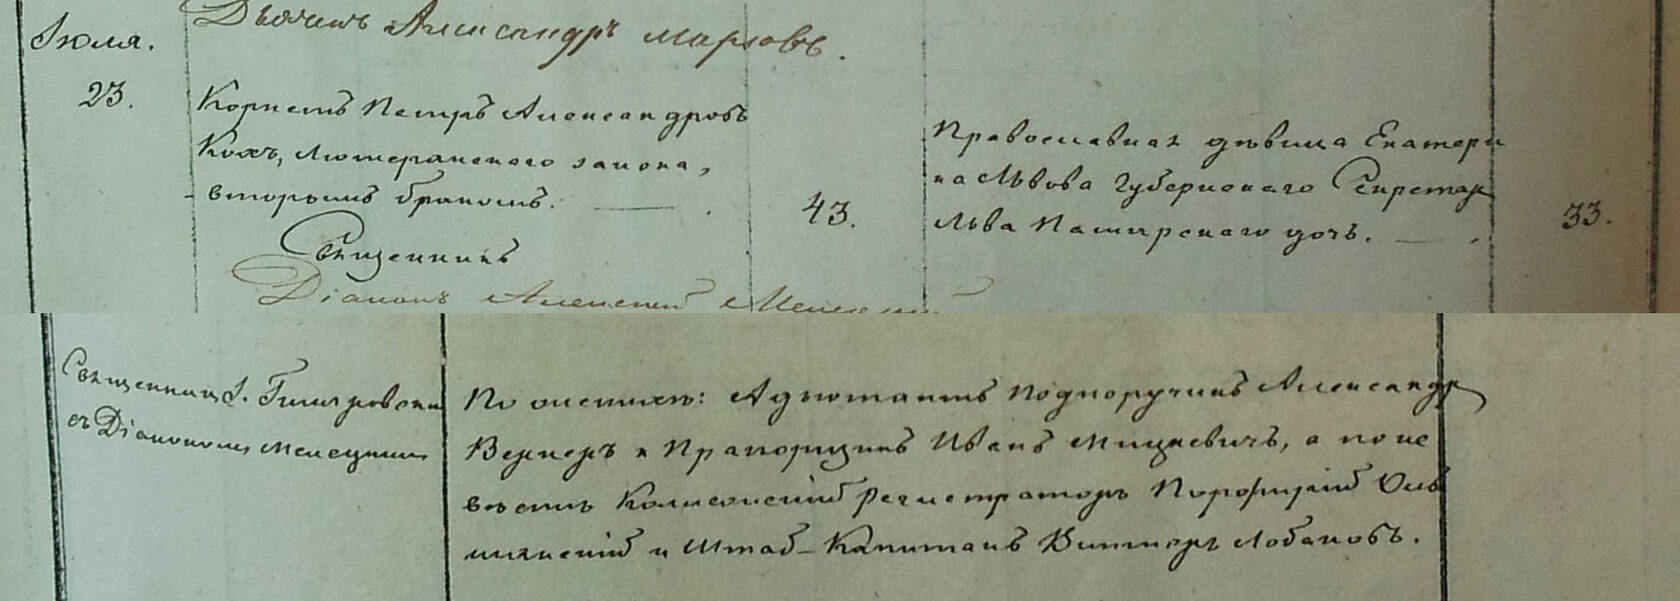 Дьячекъ Александръ Марковъ.
Іюля.
23.
Корнетъ Петръ Александровъ
Кохъ, Лютеранскаго закона,
вторымъ бракомъ.
43.
Православная дѣвица Екатери
на Львова Губернскаго Секретар
Льва Паширскаго дочь.
33.
Священникъ
Діаконъ Алексей
Священникъ І.
съ Діакономъ Мелецкимъ
По женихѣ: Адъютантъ Подпоручикъ Александр
Вернеръ и Прапорщикъ Иванъ Мицкевичъ, а по не
вѣстѣ Коллежскій Регистраторъ Порфирій
и Штаб-Капитанъ Викторъ Лобановъ.